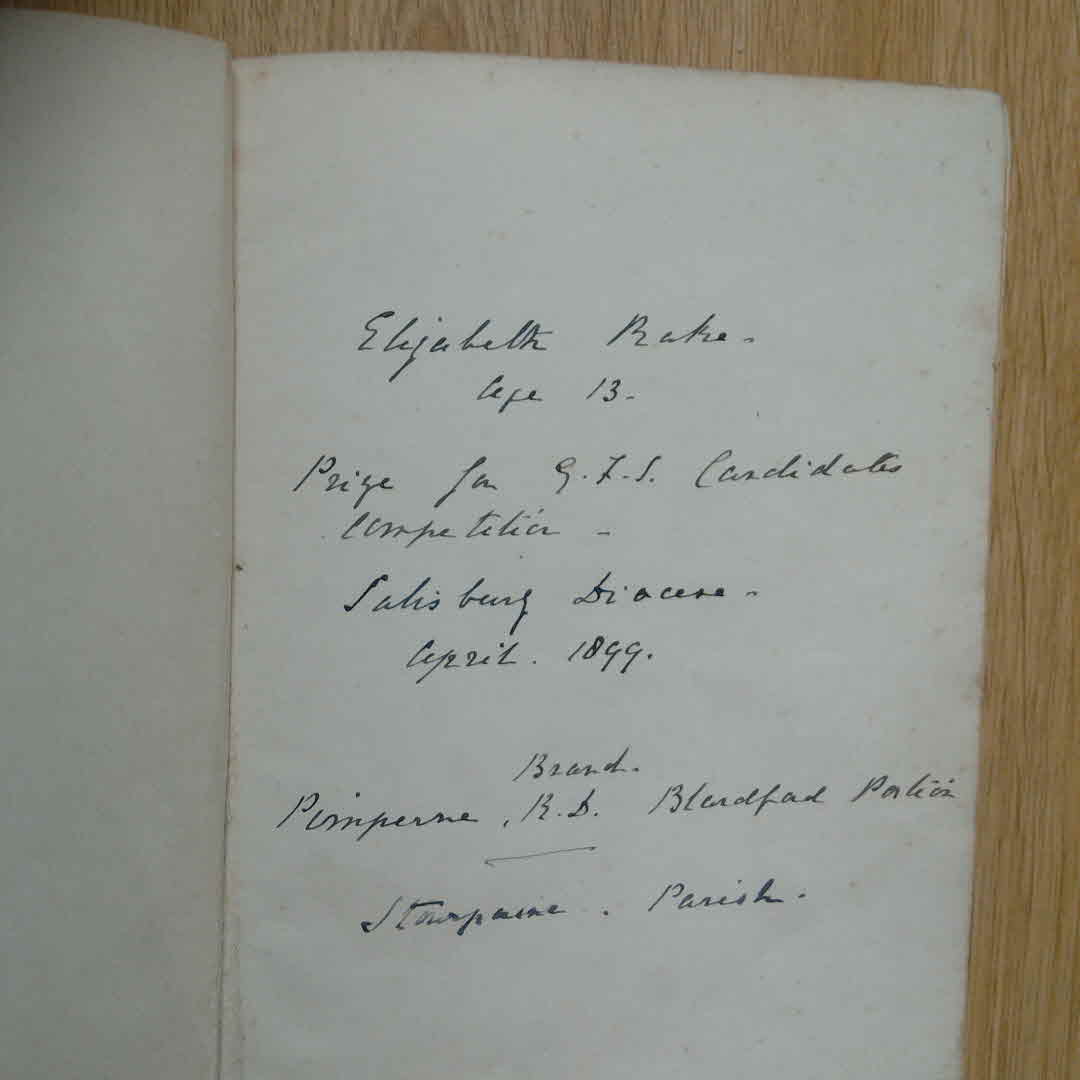 Elizabeth Rake.
Age 13.
Prize for G.F.S. Candidates
Competition -
Salisbury Diocese.
April. 1899.
Branch.
Pimperne, R.D. Blandford Portion
Stourpaine. Parish.